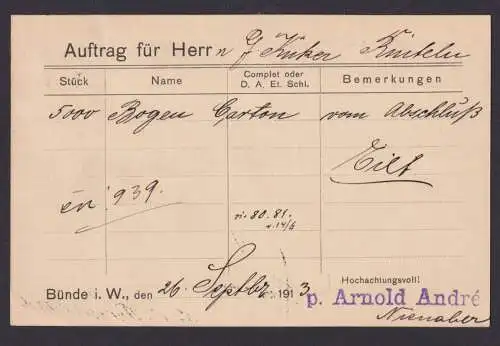 Auftrag für Herrn J Küker Rinteln
Stück Name Complet oder D. A. Et. Schl. Bemerkungen
5000 Bogen Carton vom Abschluß
Eilt
939.
80. 81.
14/6
Bünde i. W., den 26. Septbr 1913
Hochachtungsvoll!
p. Arnold André
Nienaber